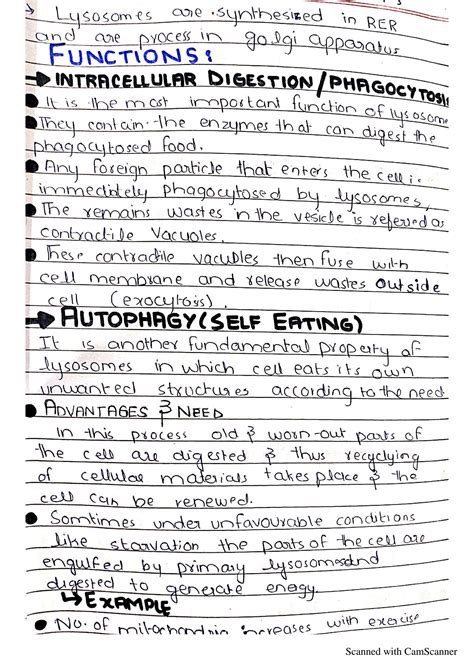 → Lysosomes are synthesized in RER
and are process in golgi apparatus
FUNCTIONS:
→ INTRACELLULAR DIGESTION/PHAGOCYTOSIS
• It is the most important function of lysosome
• They contain the enzymes that can digest the
phagocytosed food.
• Any foreign particle that enters the cell is
immeditely phagocytosed by lysosomes,
• The remains wastes in the vesicle is referred as
contractile Vacuoles.
• These contractile vacuoles then fuse with
cell membrane and release wastes outside
cell (exocytosis).
→ AUTOPHAGY (SELF EATING)
It is another fundamental property of
lysosomes in which cell eats its own
unwanted structures according to the need
• ADVANTAGES & NEED
In this process old & worn-out parts of
the cell are digested & thus recyclying
of cellular materials takes place & the
cell can be renewed.
• Somtimes under unfavourable conditions
like starvation the parts of the cell are
engulfed by primary lysosomes and
digested to generate energy.
↳ EXAMPLE
• No. of mitochondria increases with exercise
Scanned with CamScanner